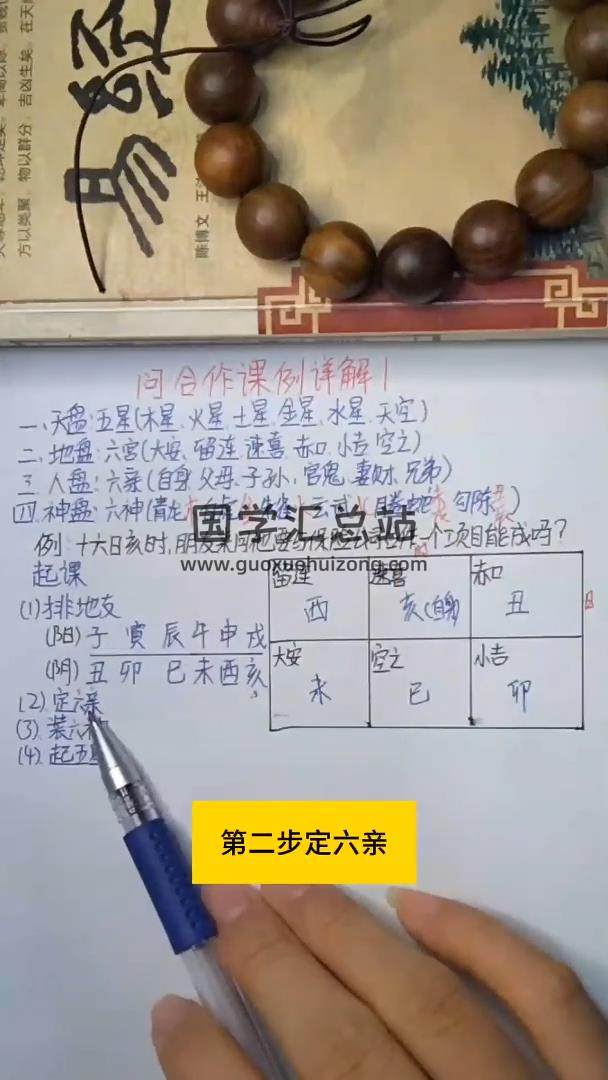 易经
陈博文 王
方以类聚，物以群分，吉凶生矣。在天
问合作课例详解1
一、天盘:五星(木星、火星、土星、金星、水星、天空)
二、地盘:六宫(大安、留连、速喜、赤口、小吉、空亡)
三、人盘:六亲(自身、父母、子孙、官鬼、妻财、兄弟)
四、神盘:六神(青龙
腾蛇
勾陈
例:十六日亥时,朋友来问他要与保险公司合作一个项目能成吗?
国学汇总站
www.guoxuehuizong.com
起课
(1)排地支
(阳)子 寅 辰 午 申 戌
(阴)丑 卯 巳 未 酉 亥
(2).定六亲
(3).装六神
(4).起五星
留连 速喜 赤口
酉 亥(自身) 丑
大安 空亡 小吉
未 巳 卯
第二步定六亲